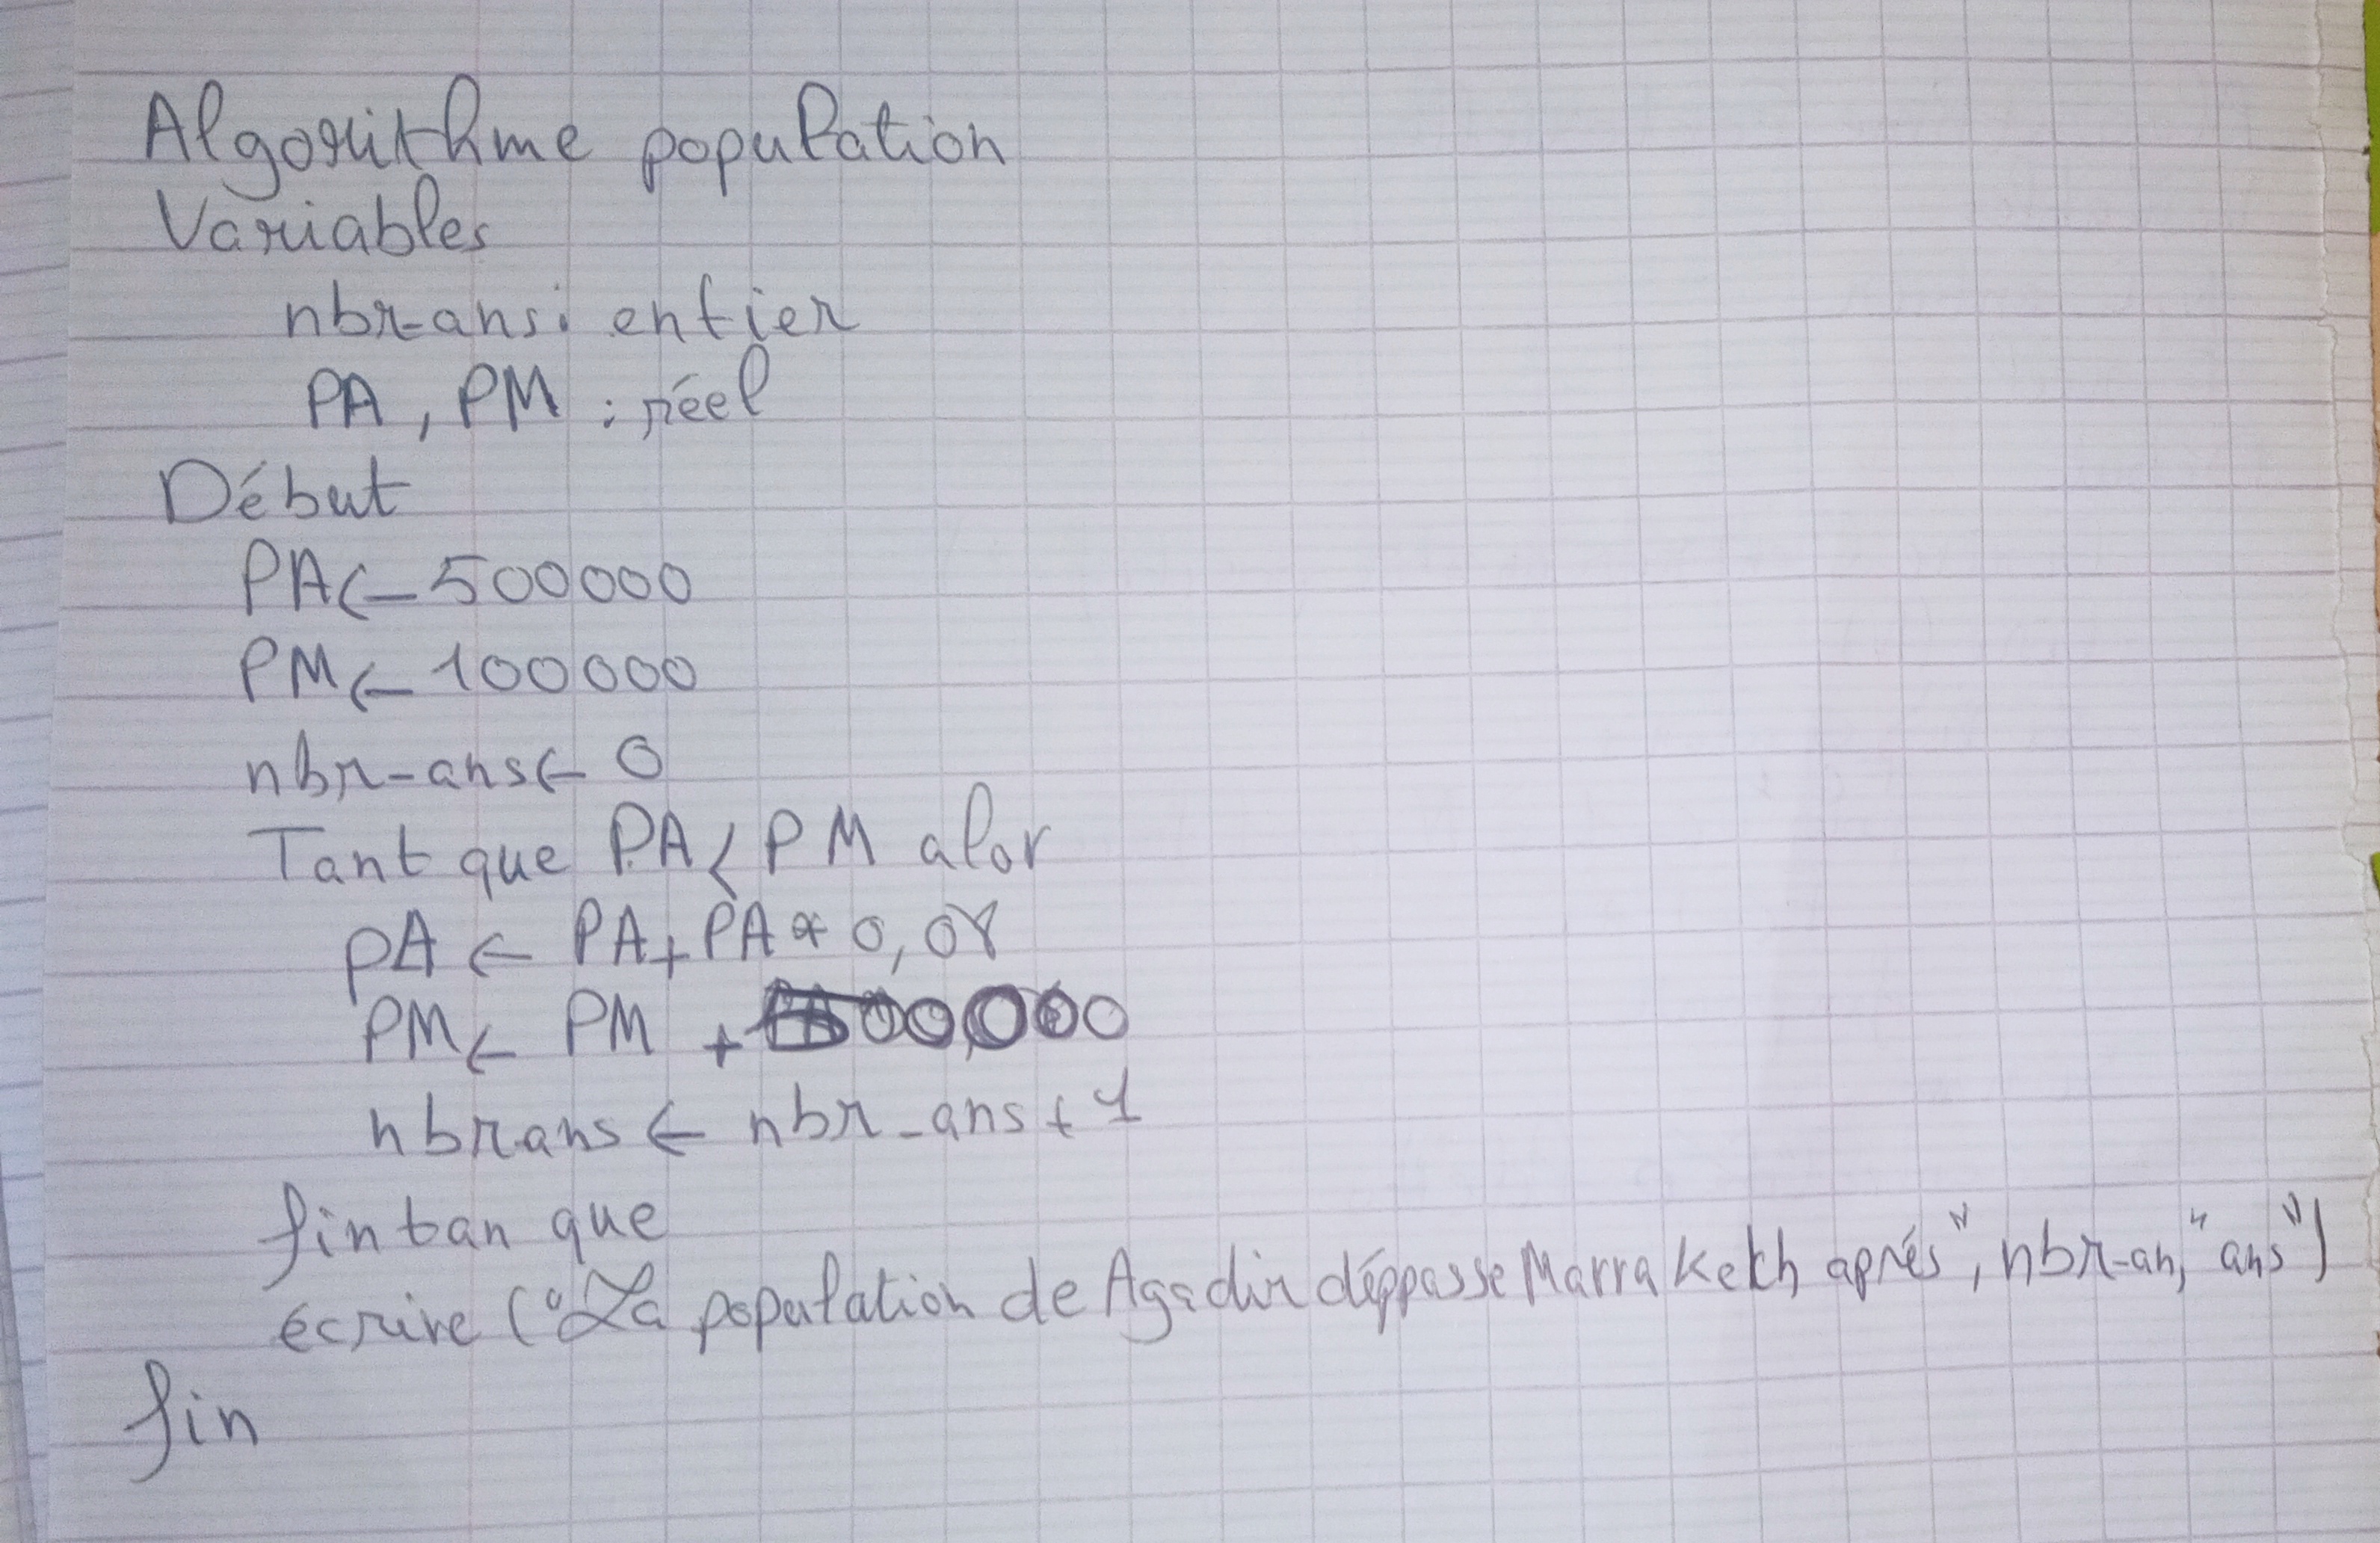 Algorithme population
Variables
nbr-ans: entier
PA, PM : réel
Début
PA <- 500000
PM <- 100000
nbr-ans <- 0
Tant que PA < PM alor
PA <- PA + PA * 0,08
PM <- PM +
nbrans <- nbr_ans + 1
fin tan que
écrire ("La population de Agadir déppasse Marrakekh après", nbr-an, "ans")
fin